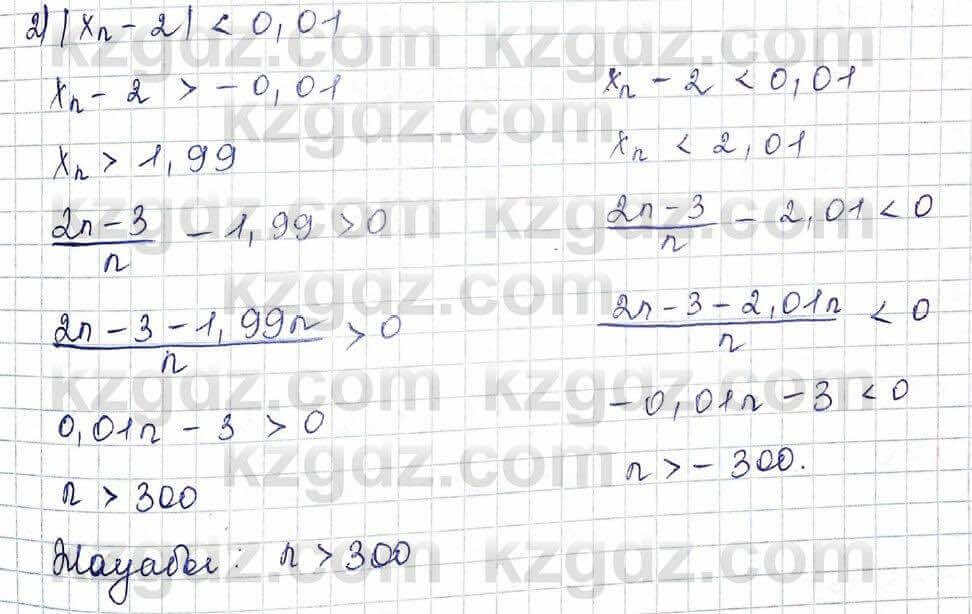 2) |xₙ - 2| < 0,01
xₙ - 2 > -0,01
xₙ > 1,99
(2n - 3)/n - 1,99 > 0
(2n - 3 - 1,99n)/n > 0
0,01n - 3 > 0
n > 300
xₙ - 2 < 0,01
xₙ < 2,01
(2n - 3)/n - 2,01 < 0
(2n - 3 - 2,01n)/n < 0
-0,01n - 3 < 0
n > -300.
Жауабы: n > 300
kzgdz.com kzgdz.com
kzgdz.com
kzgdz.com kzgdz.com
kzgdz.com
kzgdz.com kzgdz.com
kzgdz.com
kzgdz.com kzgdz.com